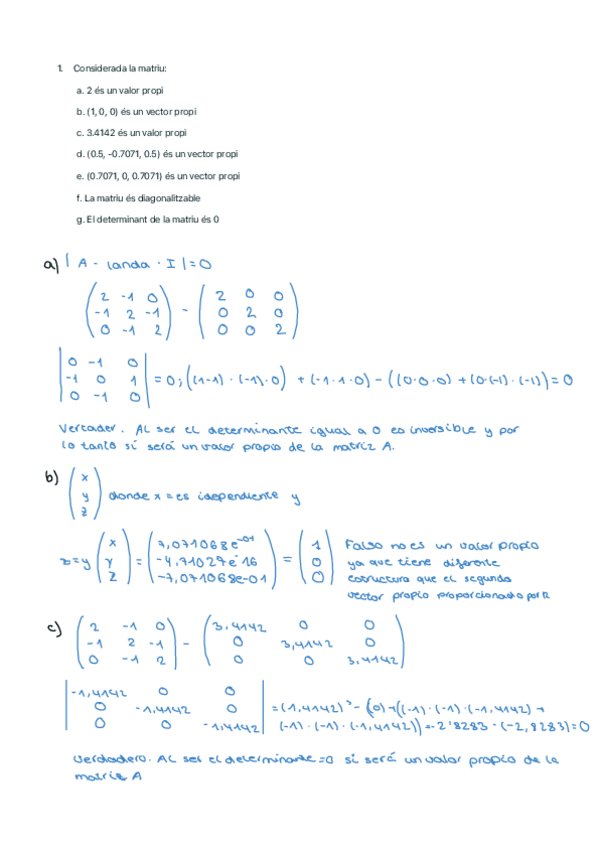 1. Considerada la matriu:
a. 2 és un valor propi
b. (1, 0, 0) és un vector propi
c. 3.4142 és un valor propi
d. (0.5, -0.7071, 0.5) és un vector propi
e. (0.7071, 0, 0.7071) és un vector propi
f. La matriu és diagonalitzable
g. El determinant de la matriu és 0
a) | A - landa · I | = 0
( 2 -1 0 ) ( 2 0 0 )
( -1 2 -1 ) - ( 0 2 0 )
( 0 -1 2 ) ( 0 0 2 )
| 0 -1 0 |
| -1 0 1 | = 0; ((1-1) · (-1) · 0) + (-1 · 1 · 0) - ((0·0·0) + (0·(-1) · (-1)) = 0
| 0 -1 0 |
Vercader. Al ser el determinante igual a 0 es inversible y por
lo tanto sí será un valor propio de la matriz A.
b) ( x )
( y ) donde x = es idependiente y
( z )
z=y ( x ) ( 7,071068e-01 ) ( 1 ) Falso no es un valor propio
( y ) = ( -4.71027e-16 ) = ( 0 ) ya que tiene diferente
( z ) ( -7,071068e-01 ) ( 0 ) estructura que el segundo
vector propio proporcionado por R
c) ( 2 -1 0 ) ( 3,4142 0 0 )
( -1 2 -1 ) - ( 0 3,4142 0 )
( 0 -1 2 ) ( 0 0 3,4142 )
| -1,4142 0 0 |
| 0 -1,4142 0 | = (-1,4142)³ - (0) + ((-1) · (-1) · (-1,4142) +
| 0 0 -1,4142 | (-1) · (-1) · (-1,4142)) = -2'8283 - (-2,8283) = 0
Verdadero. Al ser el determinante = 0 si será un valor propio de la
matriz A